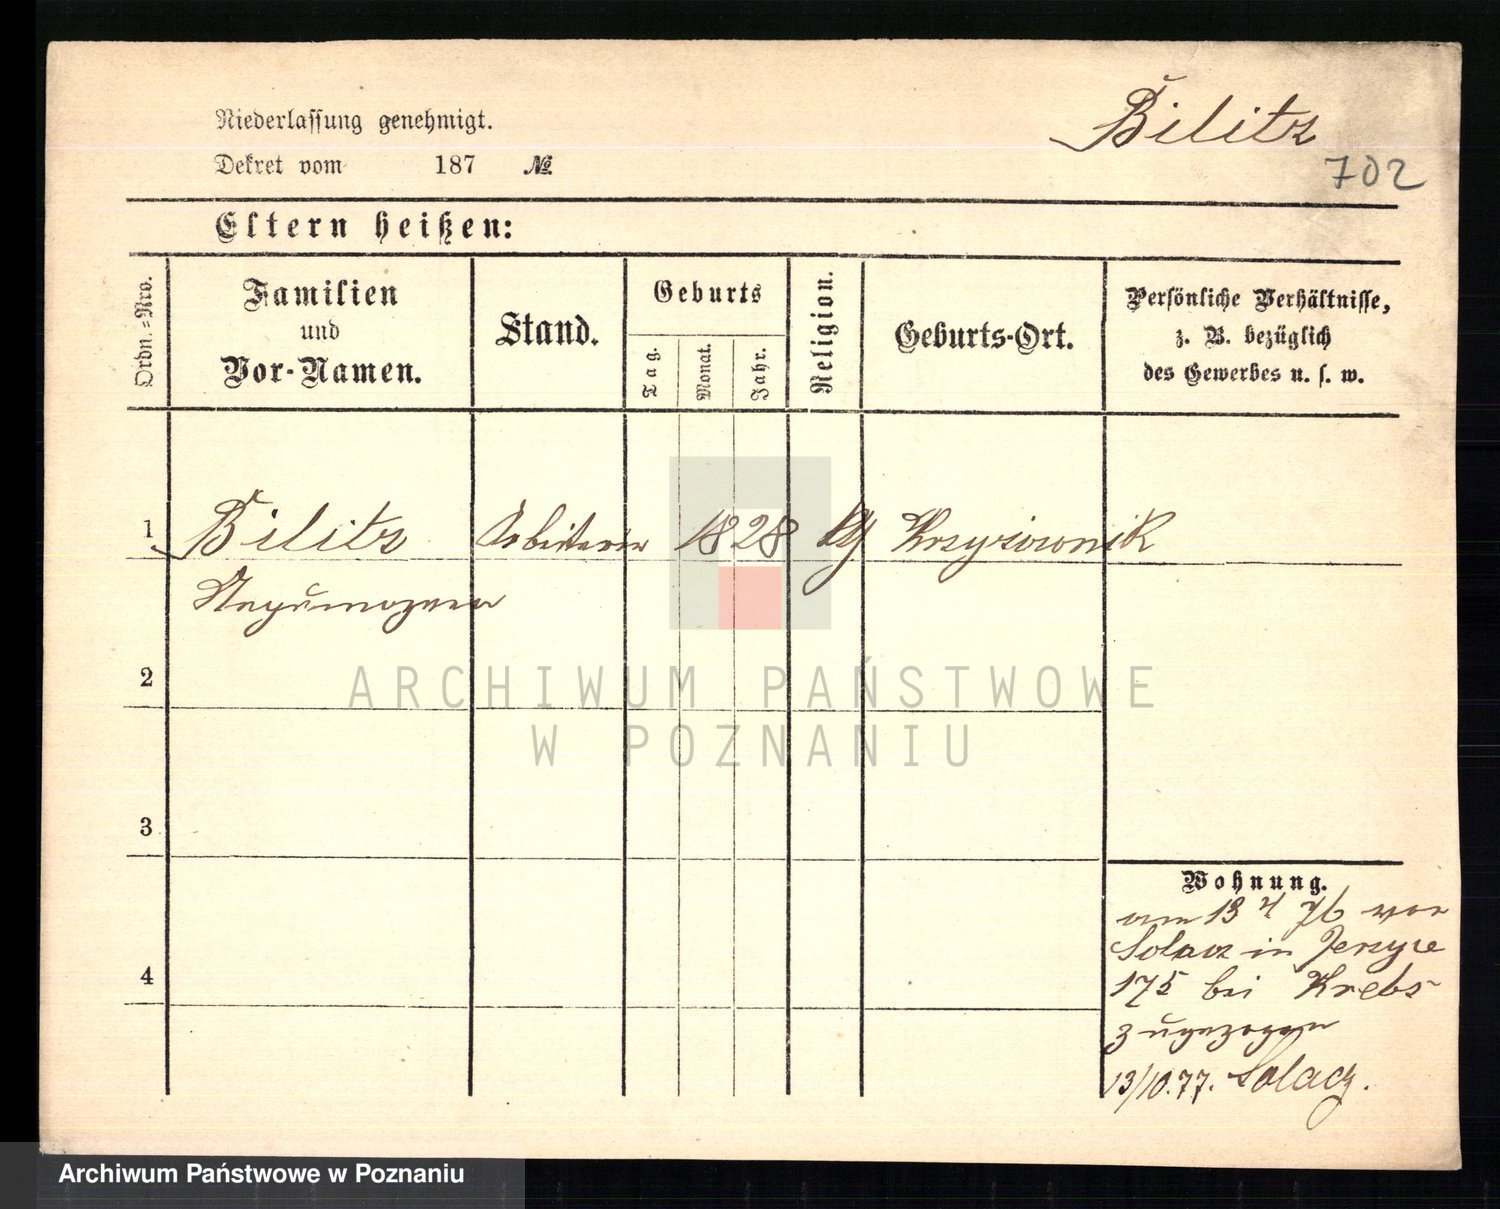 Bilitz
Niederlassung genehmigt.
Dekret vom 187 №
702
Eltern heißen:
Ordn.=Nro.
Familien
und
Vor-Namen.
Stand.
Geburts
Tag.
Monat.
Jahr.
Religion.
Geburts-Ort.
Persönliche Verhältnisse,
z. B. bezüglich
des Gewerbes u. s. w.
1 Bilitz Arbeiterin 1828 Krzyżownik
2
3
4
Wohnung.
am 13 4 76 von
Solacz in Jerzyce
175 bei Krebs
zugezogen
13/10.77. Solacz.
ARCHIWUM PAŃSTWOWE
W POZNANIU
Archiwum Państwowe w Poznaniu